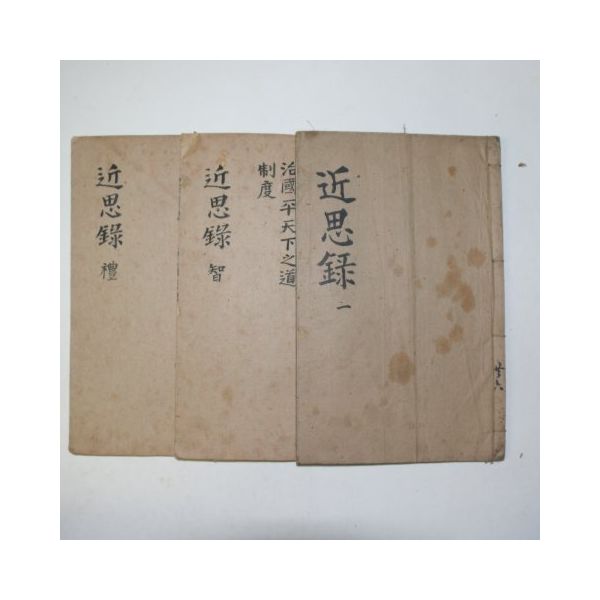 近思錄 一
治國平天下之道
制度
近思錄 智
近思錄 禮